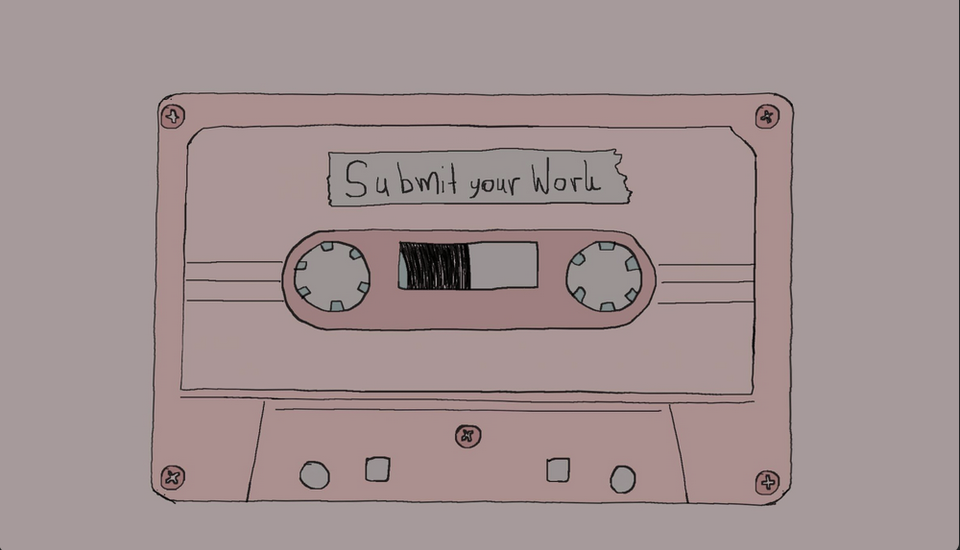 Submit your Work